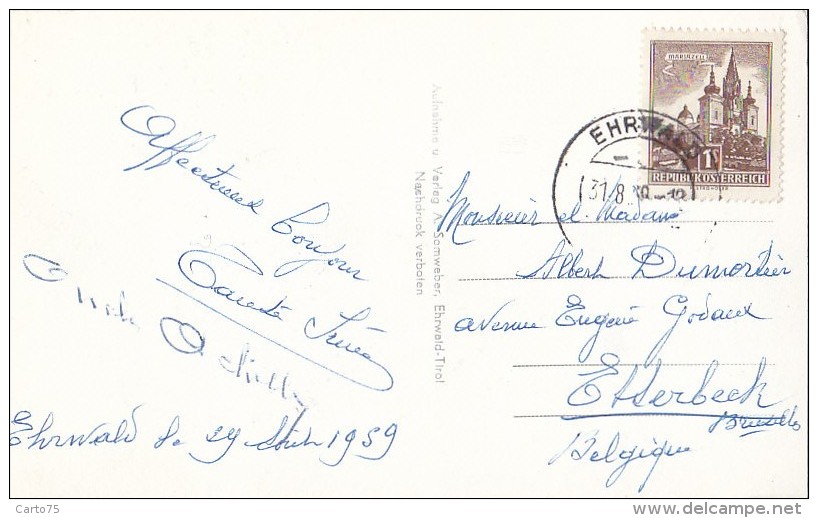 Affectueux bonjour
Oncle Achille
Ehrwald le 29 Août 1959
Aufnahme u. Verlag A. Somweber, Ehrwald-Tirol
Nachdruck verboten
MARIAZELL
1S
REPUBLIK ÖSTERREICH
EHRWALD
31.8.59
Monsieur et Madame
Albert Dumortier
avenue Eugène Godaux
Etterbeek
Bruxelles
Belgique
Carto75
delcampe.net